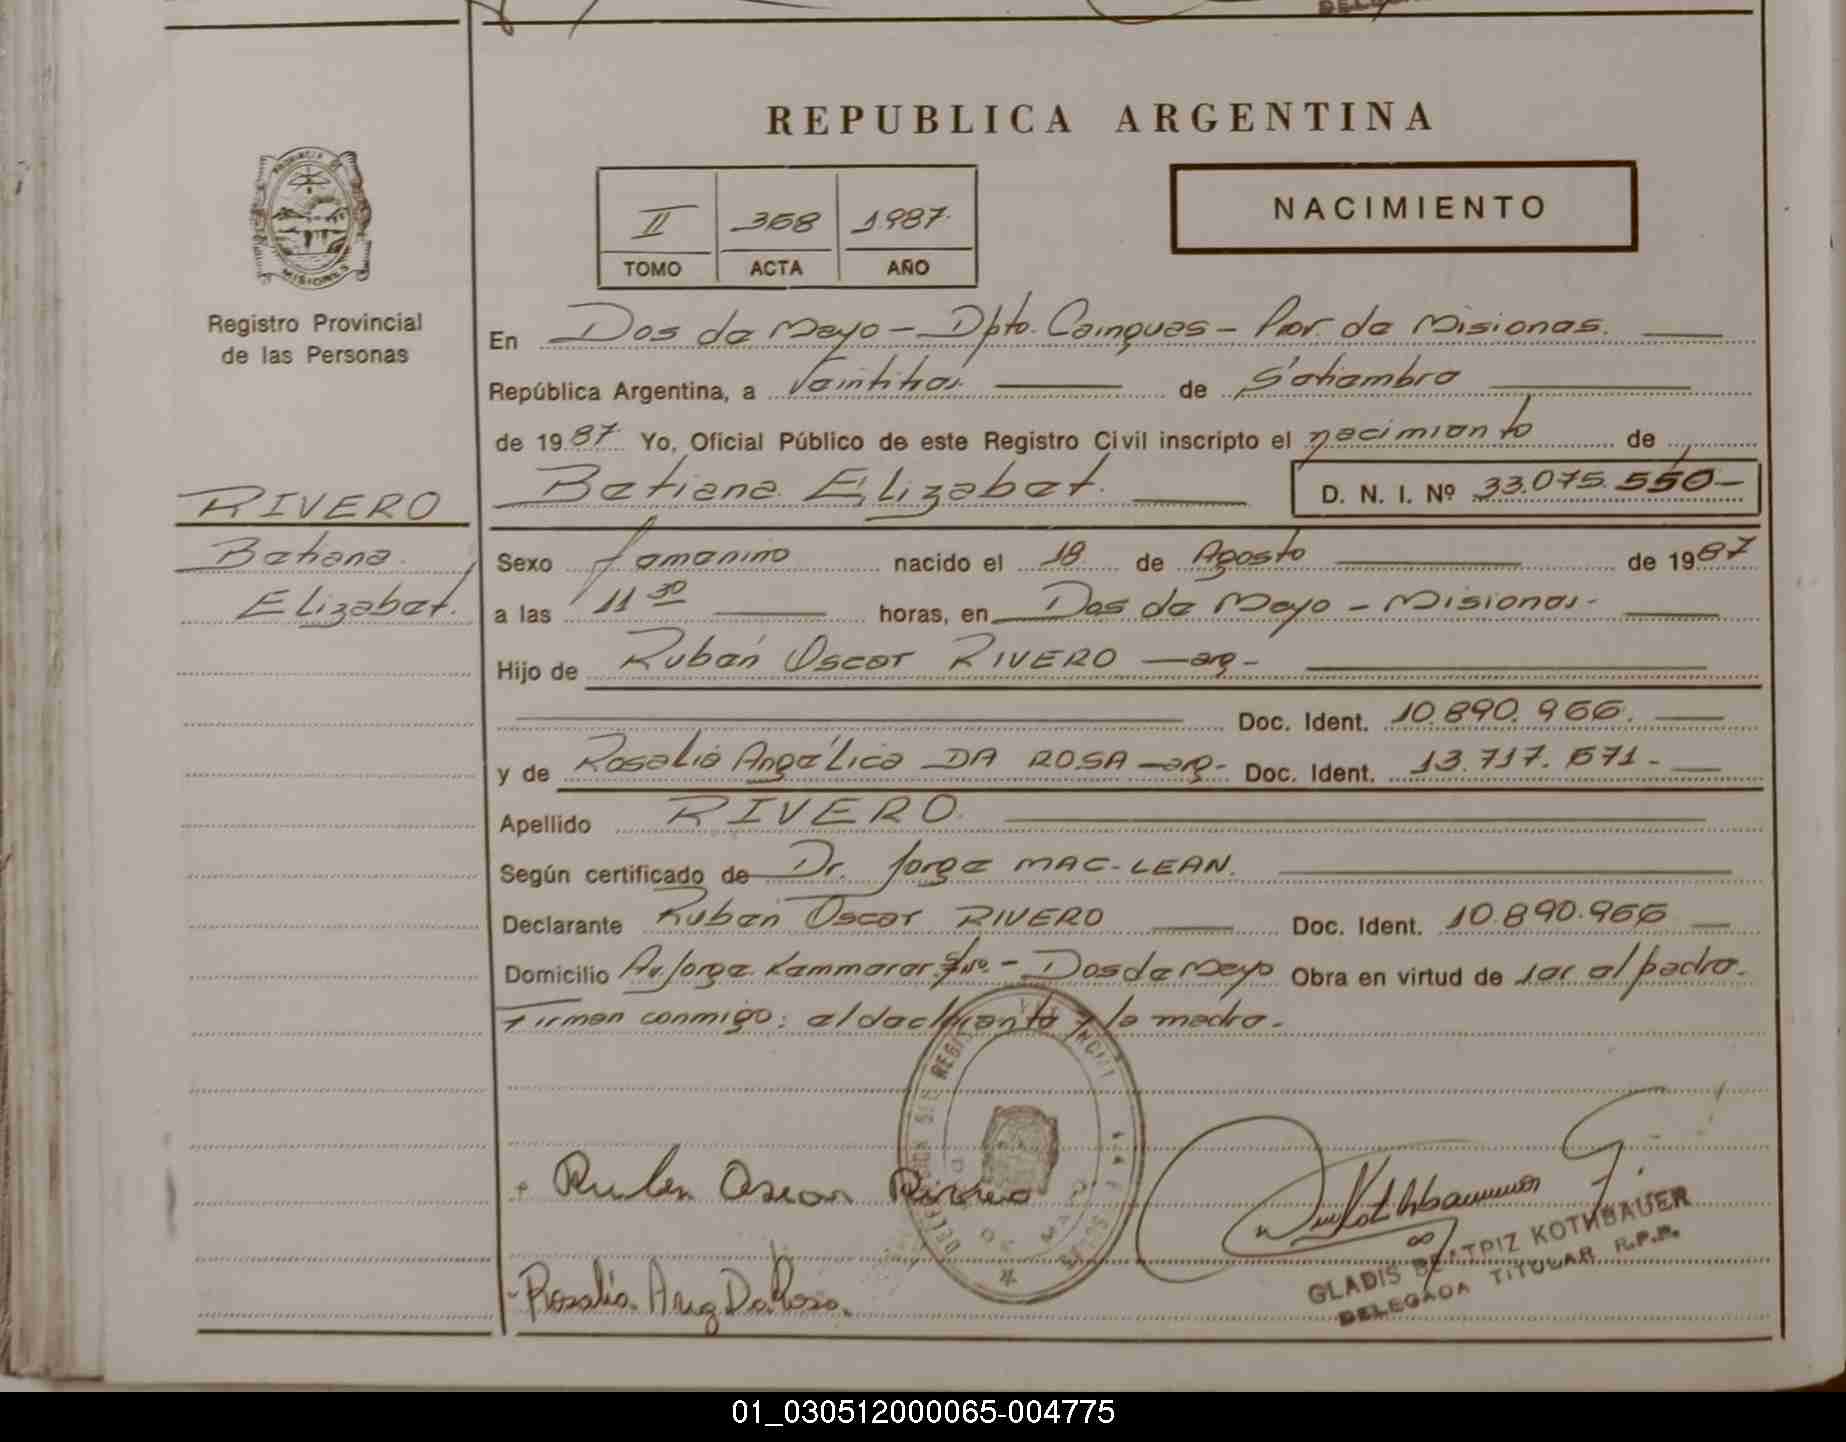 REPUBLICA ARGENTINA
NACIMIENTO
PROVINCIA DE
MISIONES
II 368 1987
TOMO ACTA AÑO
Registro Provincial
de las Personas
En Dos de Mayo - Dpto. Cainguas - Prov. de Misiones.
República Argentina, a Veintitres de Setiembre
de 1987 Yo, Oficial Público de este Registro Civil inscripto el nacimiento de
Betiana Elizabet. D. N. I. Nº 33.075.550-
RIVERO
Betiana
Elizabet.
Sexo femenino nacido el 18 de Agosto de 1987
a las 11 30 horas, en Dos de Mayo - Misiones-
Hijo de Rubén Oscar RIVERO - arg -
Doc. Ident. 10.890.966.
y de Rosalia Angélica DA ROSA - arg - Doc. Ident. 13.717.671-
Apellido RIVERO
Según certificado de Dr. Jorge MAC-LEAN.
Declarante Rubén Oscar RIVERO Doc. Ident. 10.890.966
Domicilio Av. Jorge Kammerer - Dos de Mayo Obra en virtud de ser el padre.
Firman conmigo: el declarante y la madre.
Ruben Oscar Rivero
Rosalia Ang Da Rosa.
GLADIS BEATRIZ KOTHBAUER
DELEGADA TITULAR R.P.P.
01_030512000065-004775